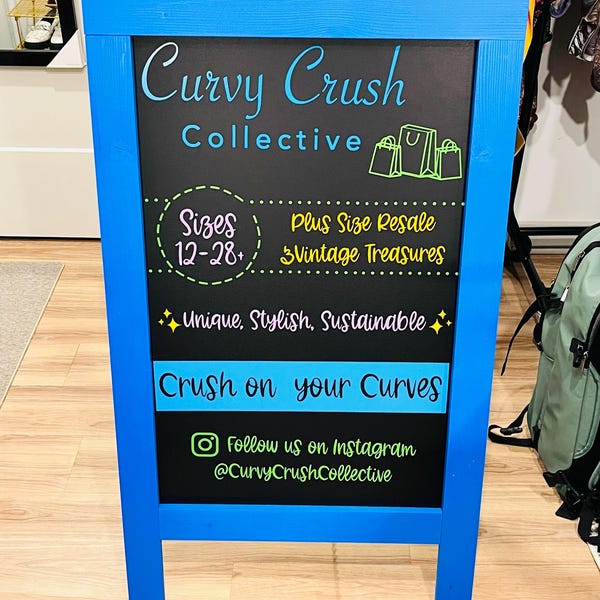 Curvy Crush
Collective
Sizes
12-28+
Plus Size Resale
&Vintage Treasures
Unique, Stylish, Sustainable
Crush on your Curves
Follow us on Instagram
@CurvyCrushCollective